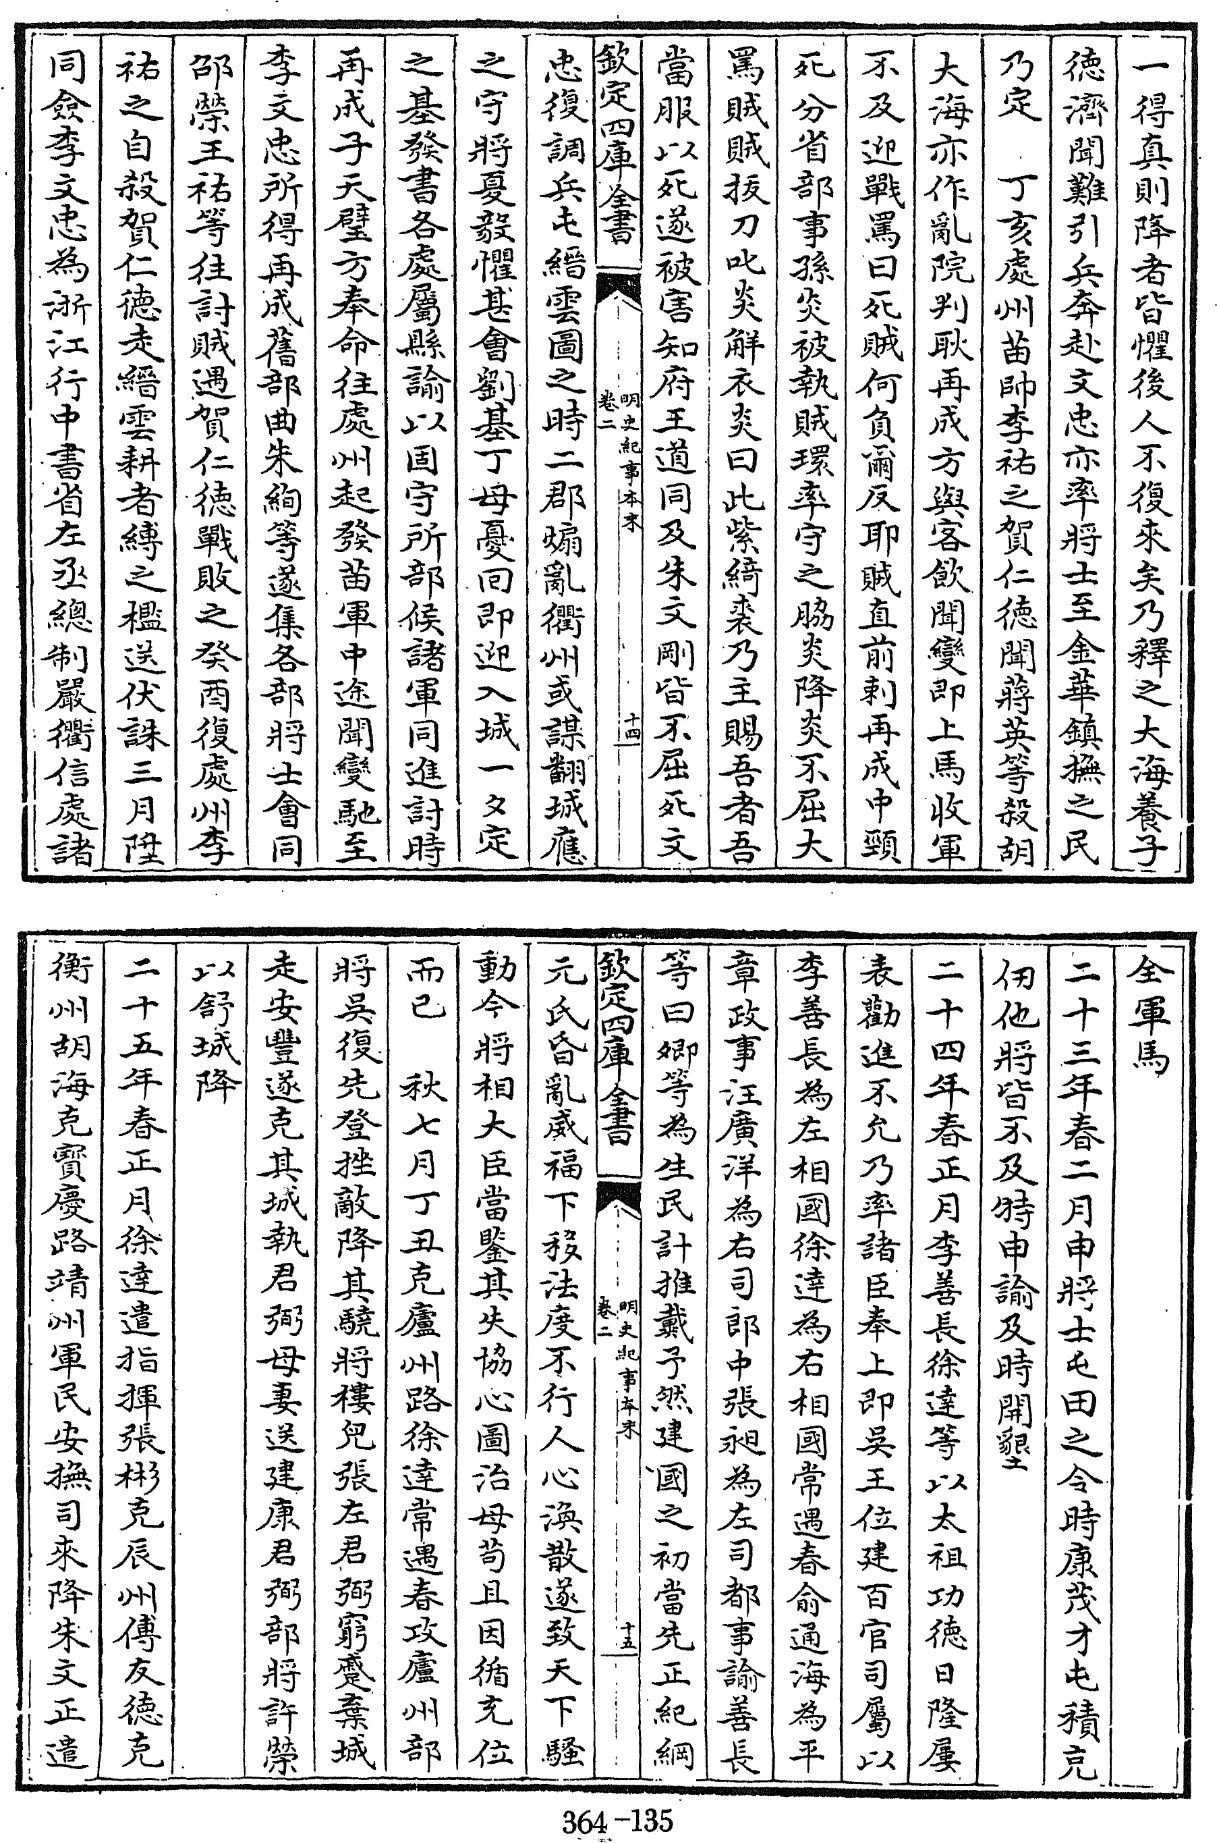 一得真則降者皆懼後人不復來矣乃釋之大海養子
德濟聞難引兵奔赴文忠亦率將士至金華鎮撫之民
乃定　丁亥處州苗帥李祐之賀仁德聞蔣英等殺胡
大海亦作亂院判耿再成方與客飲聞變即上馬收軍
不及迎戰罵曰死賊何負爾反耶賊直前刺再成中頸
死分省部事孫炎被執賊環率守之脇炎降炎不屈大
罵賊賊拔刀叱炎解衣炎曰此紫綺裘乃主賜吾者吾
當服以死遂被害知府王道同及朱文剛皆不屈死文
欽定四庫全書
明史紀事本末
卷二
十四
忠復調兵屯縉雲圖之時二郡煽亂衢州或謀翻城應
之守將夏毅懼甚會劉基丁母憂回即迎入城一夕定
之基發書各處屬縣諭以固守所部候諸軍同進討時
再成子天璧方奉命往處州起發苗軍中途聞變馳至
李文忠所得再成舊部曲朱絢等遂集各部將士會同
邵榮王祐等往討賊遇賀仁德戰敗之癸酉復處州李
祐之自殺賀仁德走縉雲耕者縛之檻送伏誅三月陞
同僉李文忠為浙江行中書省左丞總制嚴衢信處諸
全軍馬
二十三年春二月申將士屯田之令時康茂才屯積充
仞他將皆不及特申諭及時開墾
二十四年春正月李善長徐達等以太祖功德日隆屢
表勸進不允乃率諸臣奉上即吳王位建百官司屬以
李善長為左相國徐達為右相國常遇春俞通海為平
章政事汪廣洋為右司郎中張昶為左司都事諭善長
等曰卿等為生民計推戴予然建國之初當先正紀綱
欽定四庫全書
明史紀事本末
卷二
十五
元氏昏亂威福下移法度不行人心渙散遂致天下騷
動今將相大臣當鑒其失協心圖治毋苟且因循充位
而已　秋七月丁丑克廬州路徐達常遇春攻廬州部
將吳復先登挫敵降其驍將樓兒張左君弼窮蹙棄城
走安豐遂克其城執君弼母妻送建康君弼部將許榮
以舒城降
二十五年春正月徐達遣指揮張彬克辰州傅友德克
衡州胡海克寶慶路靖州軍民安撫司來降朱文正遣
364-135